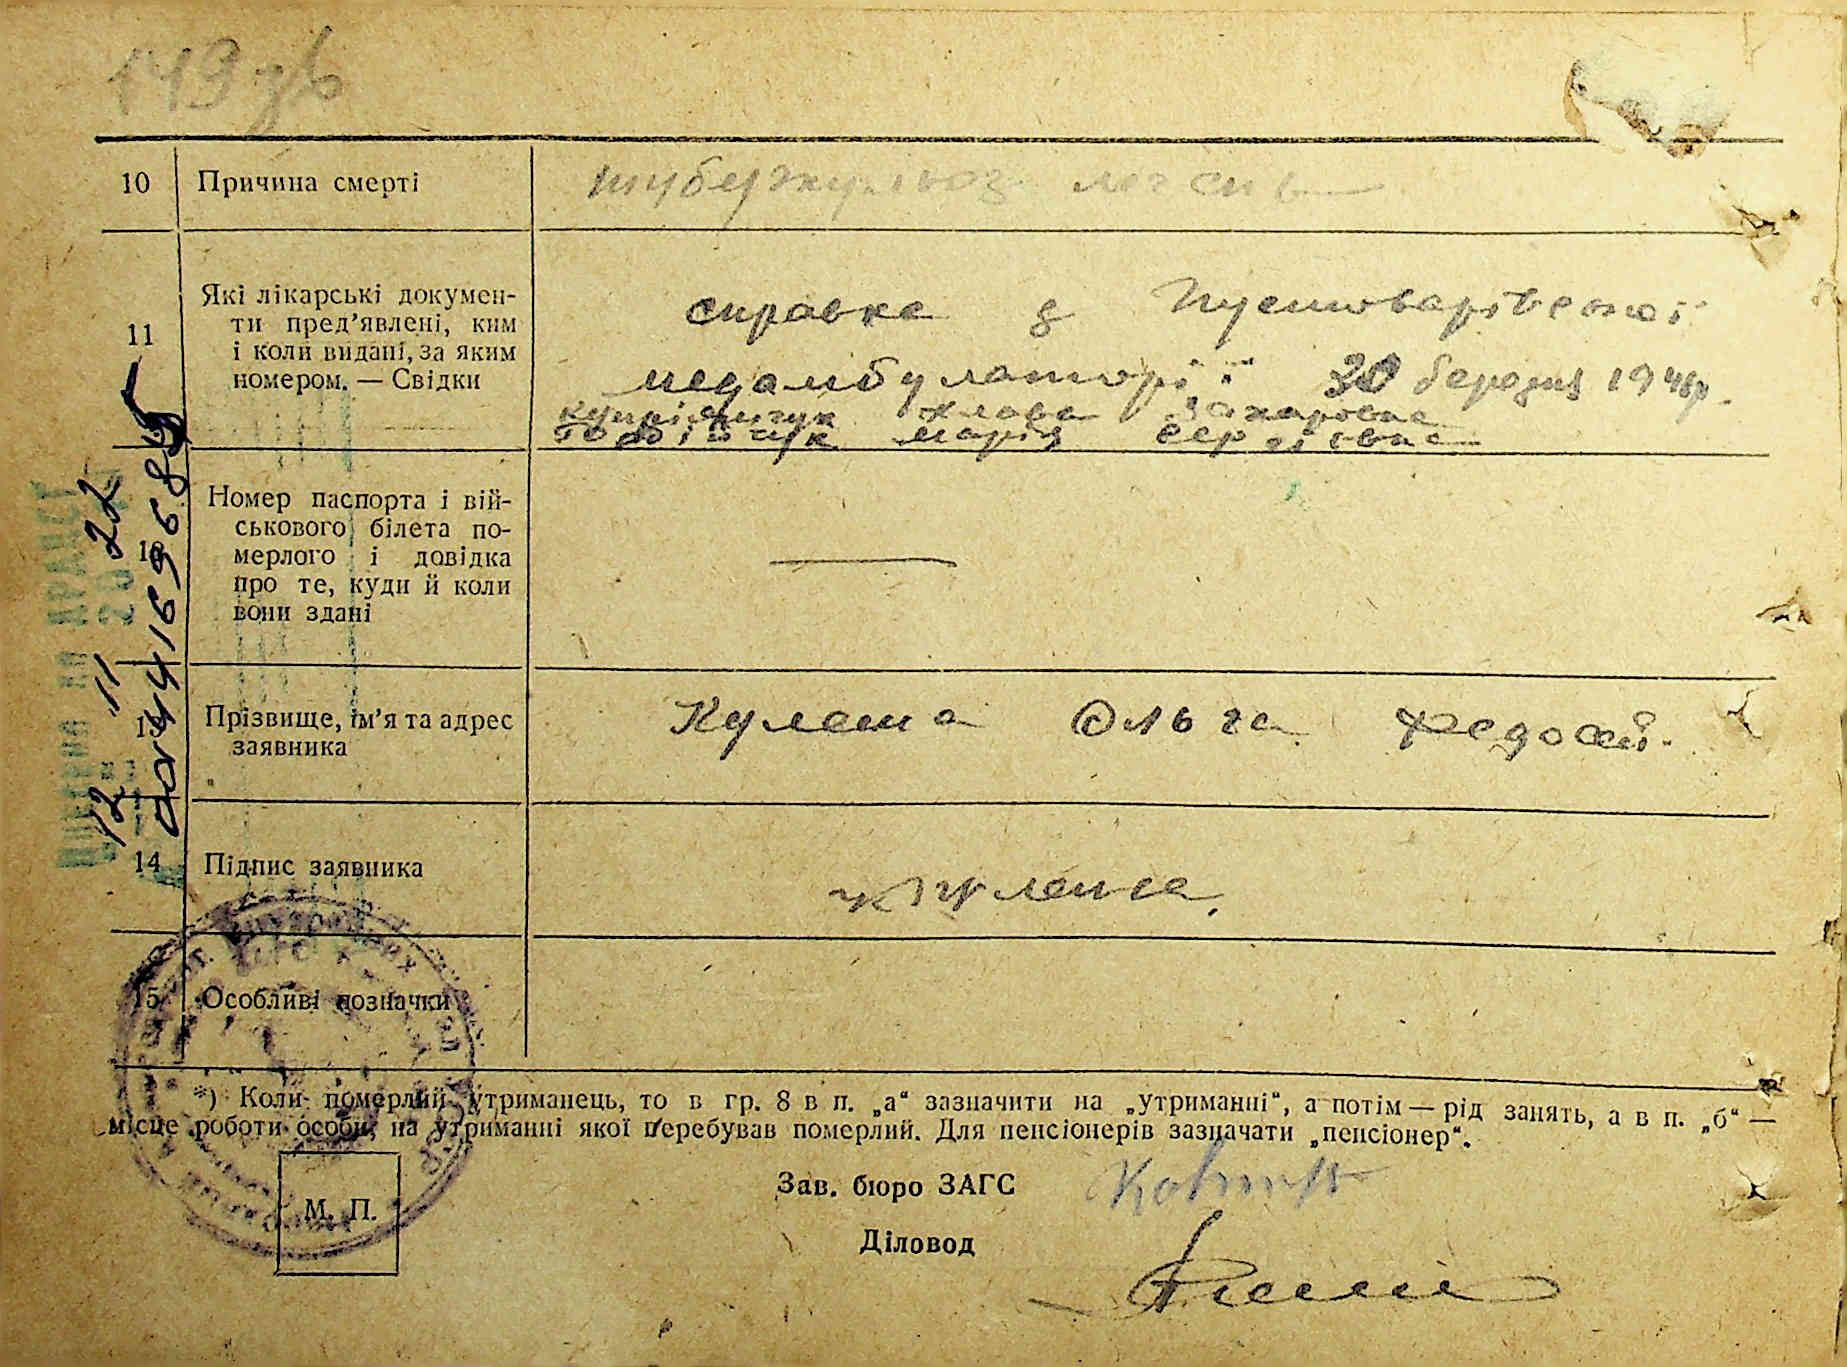 149 зв
10 Причина смерті туберкульоз легень
11 Які лікарські докумен-
ти пред'явлені, ким
і коли видані, за яким
номером. — Свідки
справка з Пустоварівської
медамбулаторії 30 березня 1948р.
Клава Захаровна
Марія Сергіївна
Номер паспорта і вій-
ськового білета по-
мерлого і довідка
про те, куди й коли
вони здані
—
Прізвище, ім'я та адрес
заявника
Кулеша Ольга Федосії.
14 Підпис заявника Кулеша.
15 Особливі позначки
12 11 22
*) Коли померлий утриманець, то в гр. 8 в п. „а“ зазначити на „утриманні“, а потім — рід занять, а в п. „б“ —
місце роботи особи, на утриманні якої перебував померлий. Для пенсіонерів зазначати „пенсіонер“.
Зав. бюро ЗАГС
М. П.
Діловод